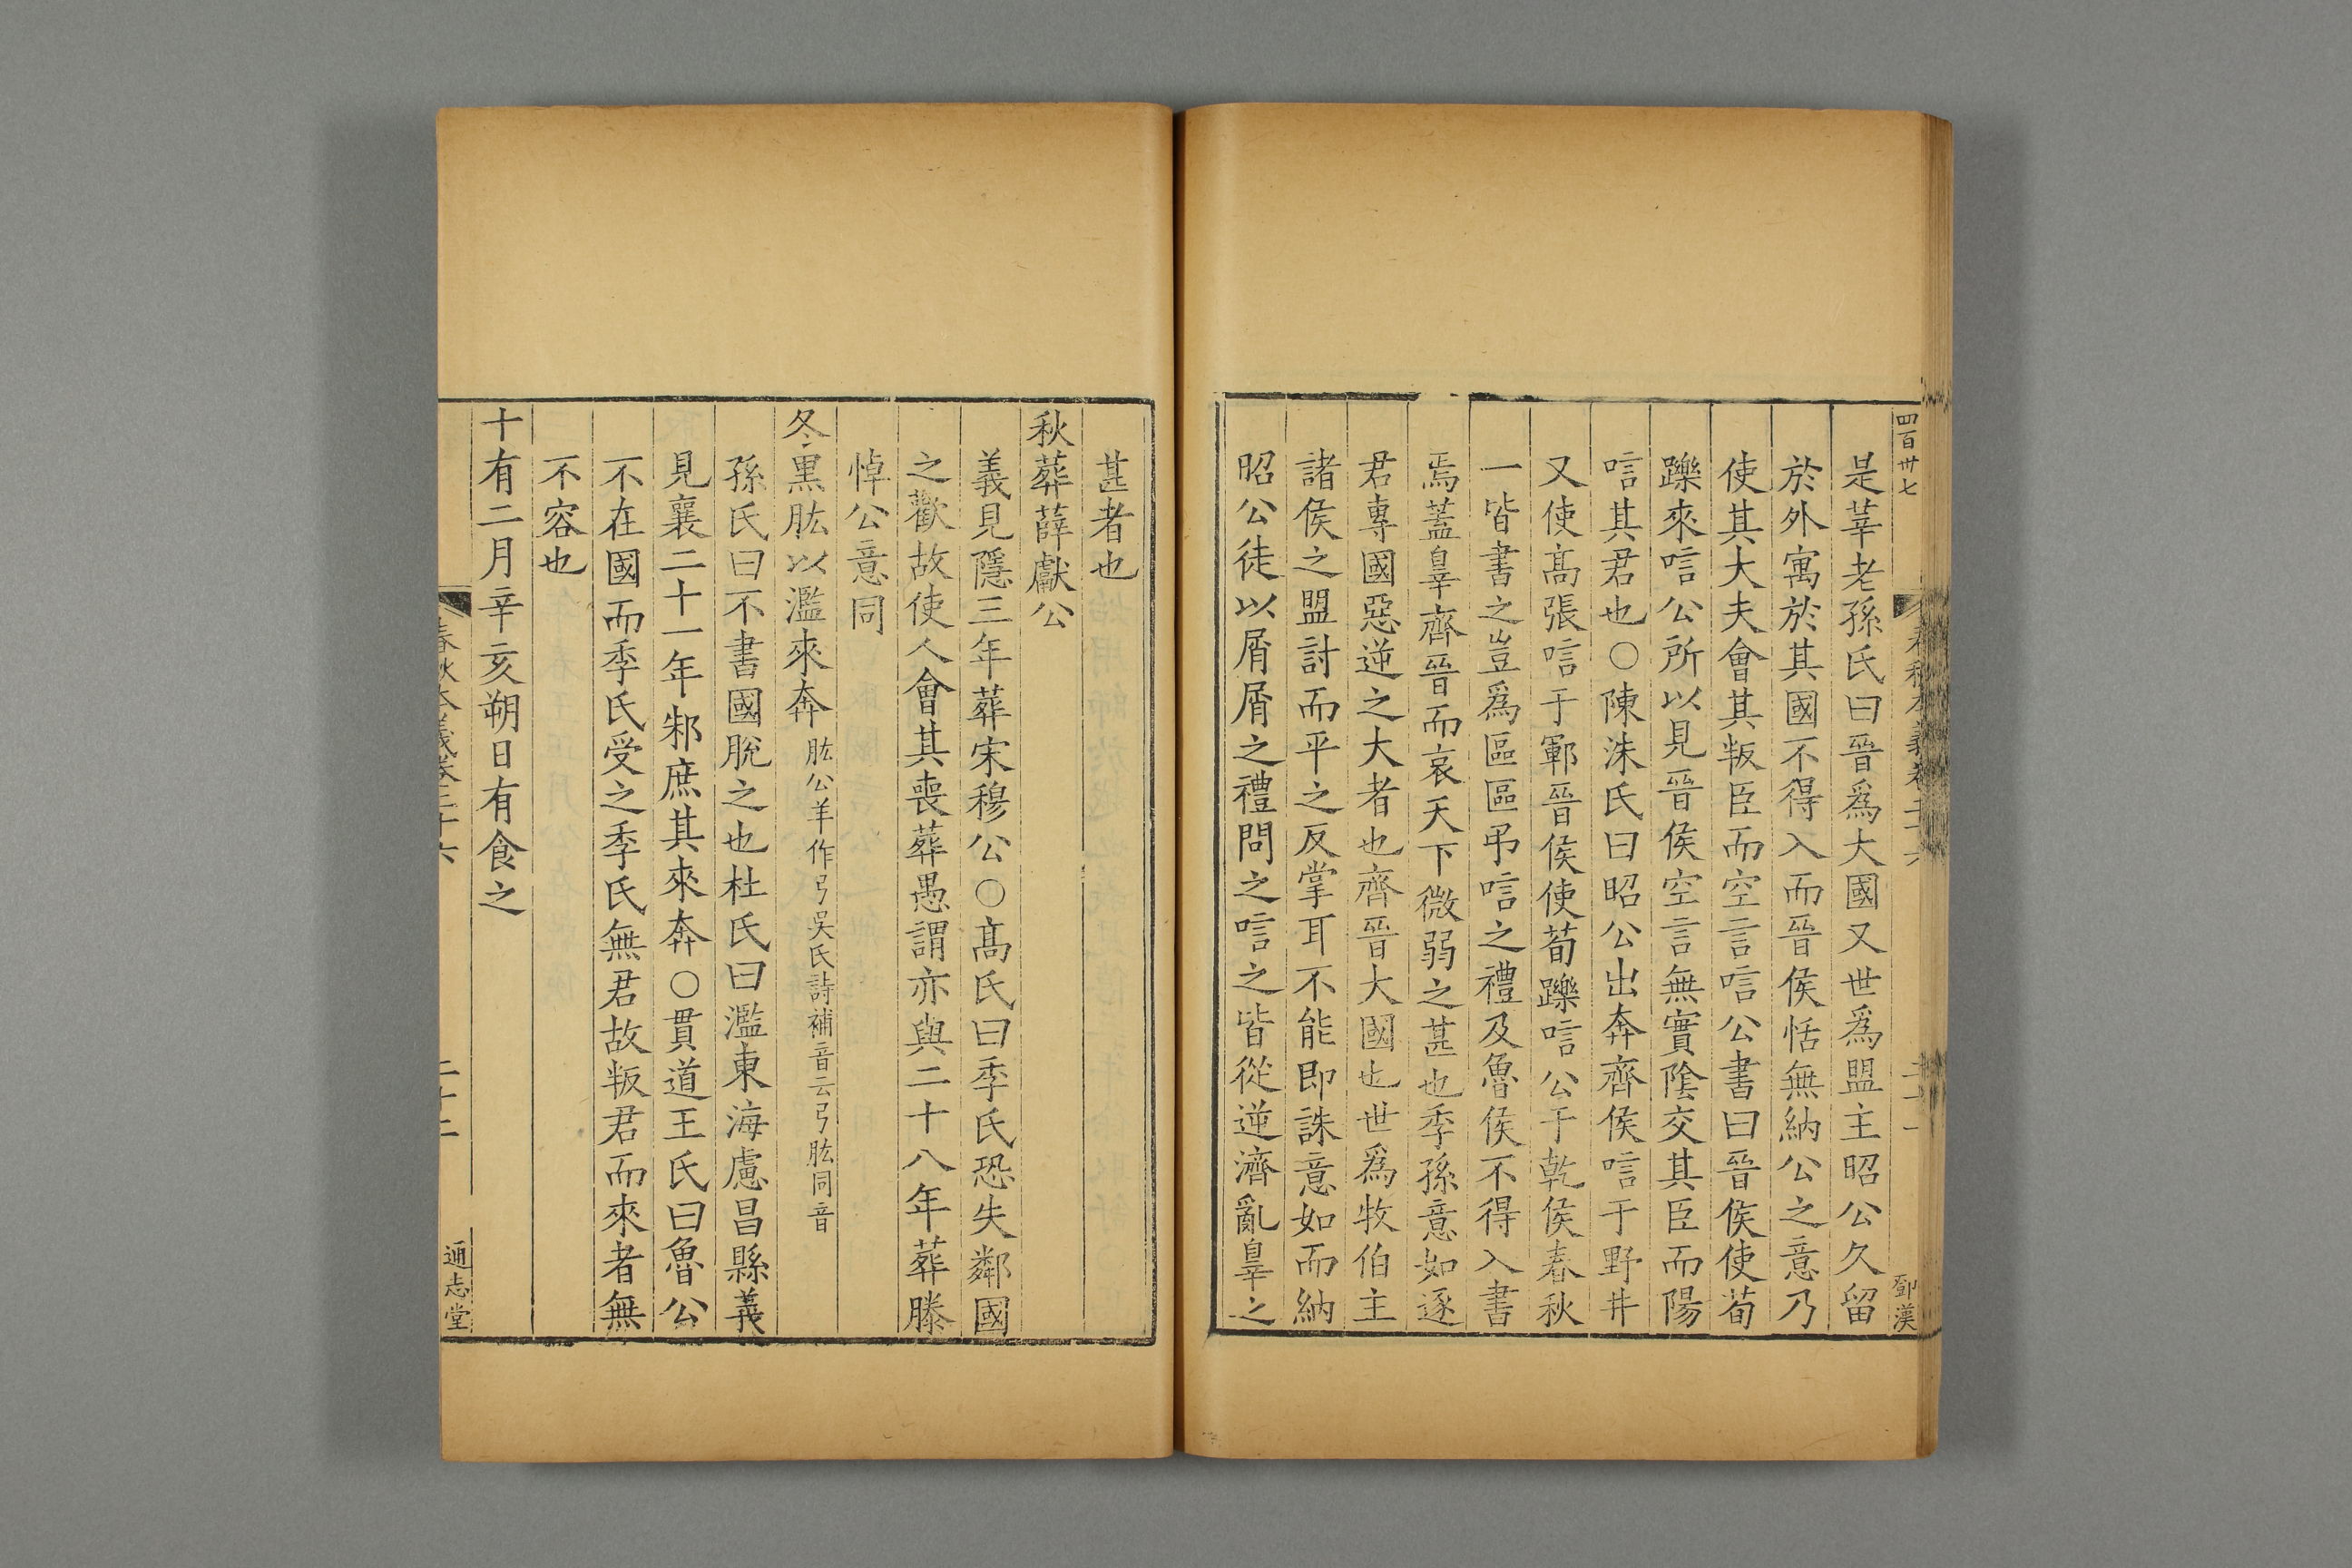 四百卅七
鄧漢
是莘老孫氏曰晉爲大國又世爲盟主昭公久留
於外寓於其國不得入而晉侯恬無納公之意乃
使其大夫會其叛臣而空言唁公書曰晉侯使荀
躒來唁公所以見晉侯空言無實陰交其臣而陽
唁其君也○陳洙氏曰昭公出奔齊侯唁于野井
又使髙張唁于鄆晉侯使荀躒唁公于乾侯春秋
一皆書之豈爲區區弔唁之禮及魯侯不得入書
焉蓋辠齊晉而哀天下微弱之甚也季孫意如逐
君專國惡逆之大者也齊晉大國也世爲牧伯主
諸侯之盟討而平之反掌耳不能即誅意如而納
昭公徒以屑屑之禮問之唁之皆從逆濟亂辠之
甚者也
秋葬薛獻公
義見隱三年葬宋穆公○髙氏曰季氏恐失鄰國
之歡故使人會其喪葬愚謂亦與二十八年葬滕
悼公意同
冬黑肱以濫來奔 肱公羊作弓吳氏詩補音云弓肱同音
孫氏曰不書國脫之也杜氏曰濫東海慮昌縣義
見襄二十一年邾庶其來奔○貫道王氏曰魯公
不在國而季氏受之季氏無君故叛君而來者無
不容也
十有二月辛亥朔日有食之
春秋本義卷二十六
二十二
通志堂